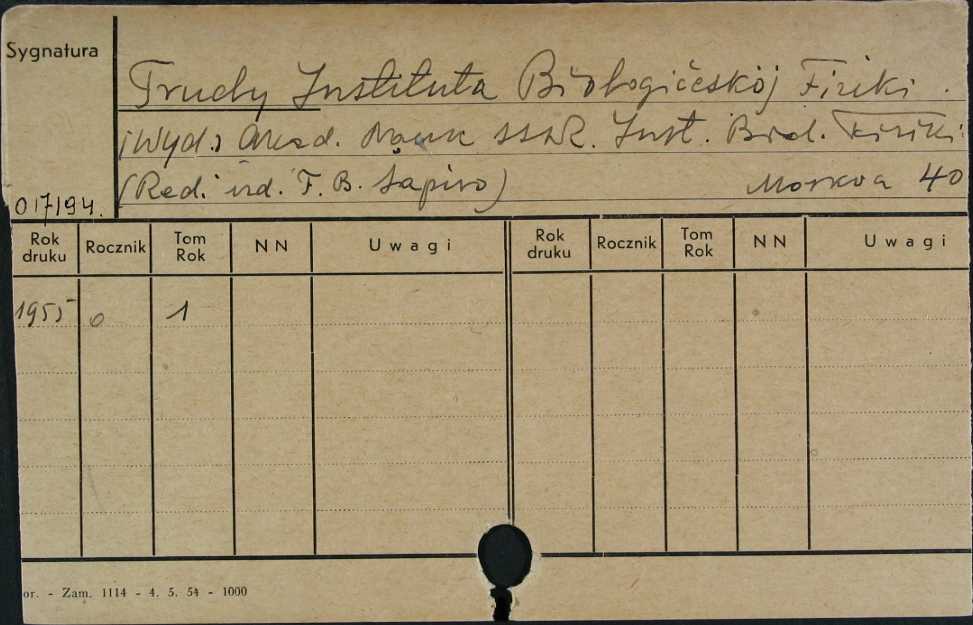 Sygnatura
Trudy Instituta Biołogičeskoj Fiziki.
(Wyd.) Akad. Nauk SSSR. Inst. Bioł. Fiziki.
(Red. izd. F. B. Šapiro) Moskva 40
017194.
Rok druku Rocznik Tom Rok NN Uwagi Rok druku Rocznik Tom Rok NN Uwagi
1955 0 1
or. - Zam. 1114 - 4. 5. 54 - 1000